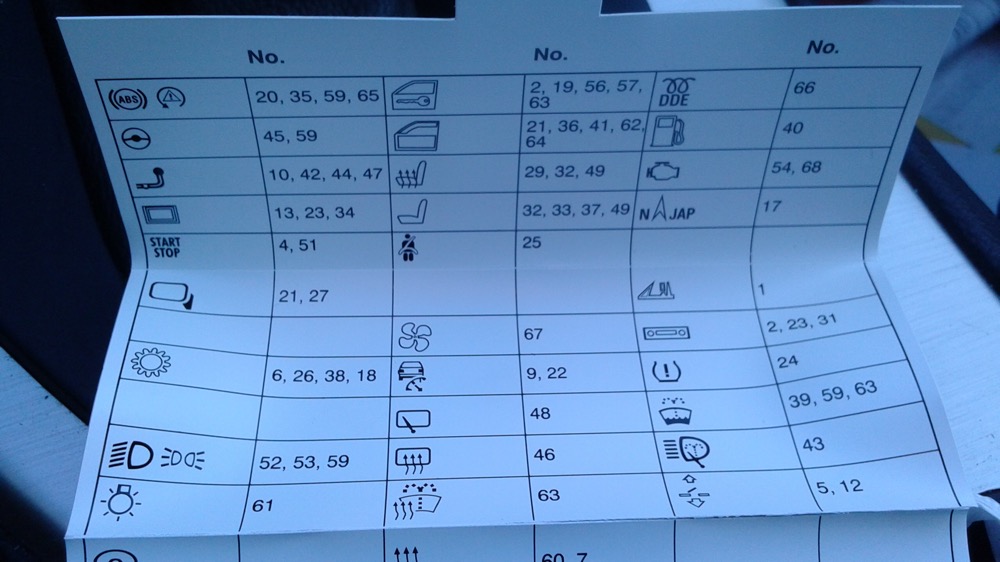 No. No. No.
ABS 20, 35, 59, 65 2, 19, 56, 57, DDE 66
63
45, 59 21, 36, 41, 62, 40
64
10, 42, 44, 47 29, 32, 49 54, 68
13, 23, 34 32, 33, 37, 49 N JAP 17
START
STOP 4, 51 25
21, 27 1
67 2, 23, 31
6, 26, 38, 18 9, 22 24
48 39, 59, 63
52, 53, 59 46 43
61 63 5, 12
60, 7